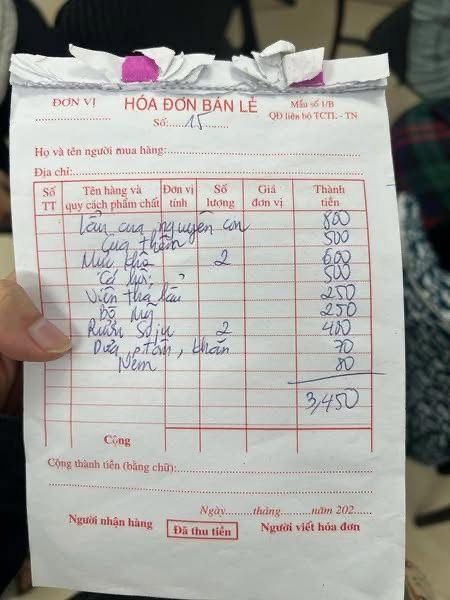 ĐƠN VỊ
HÓA ĐƠN BÁN LẺ
Mẫu số 1/B
QĐ liên bộ TCTL - TN
Số:......15......
Họ và tên người mua hàng:
Địa chỉ:
Số TT Tên hàng và quy cách phẩm chất Đơn vị tính Số lượng Giá đơn vị Thành tiền
Lẩu cua nguyên con 800
Cua thêm 500
Mực khô 2 600
Cá 500
Viên thả lẩu 250
Bò Mỹ 250
Rượu Soju 2 400
Dưa, khăn 70
Nem 80
3,450
Cộng
Cộng thành tiền (bằng chữ):
Ngày.........tháng.........năm 202.....
Người nhận hàng
Đã thu tiền
Người viết hóa đơn